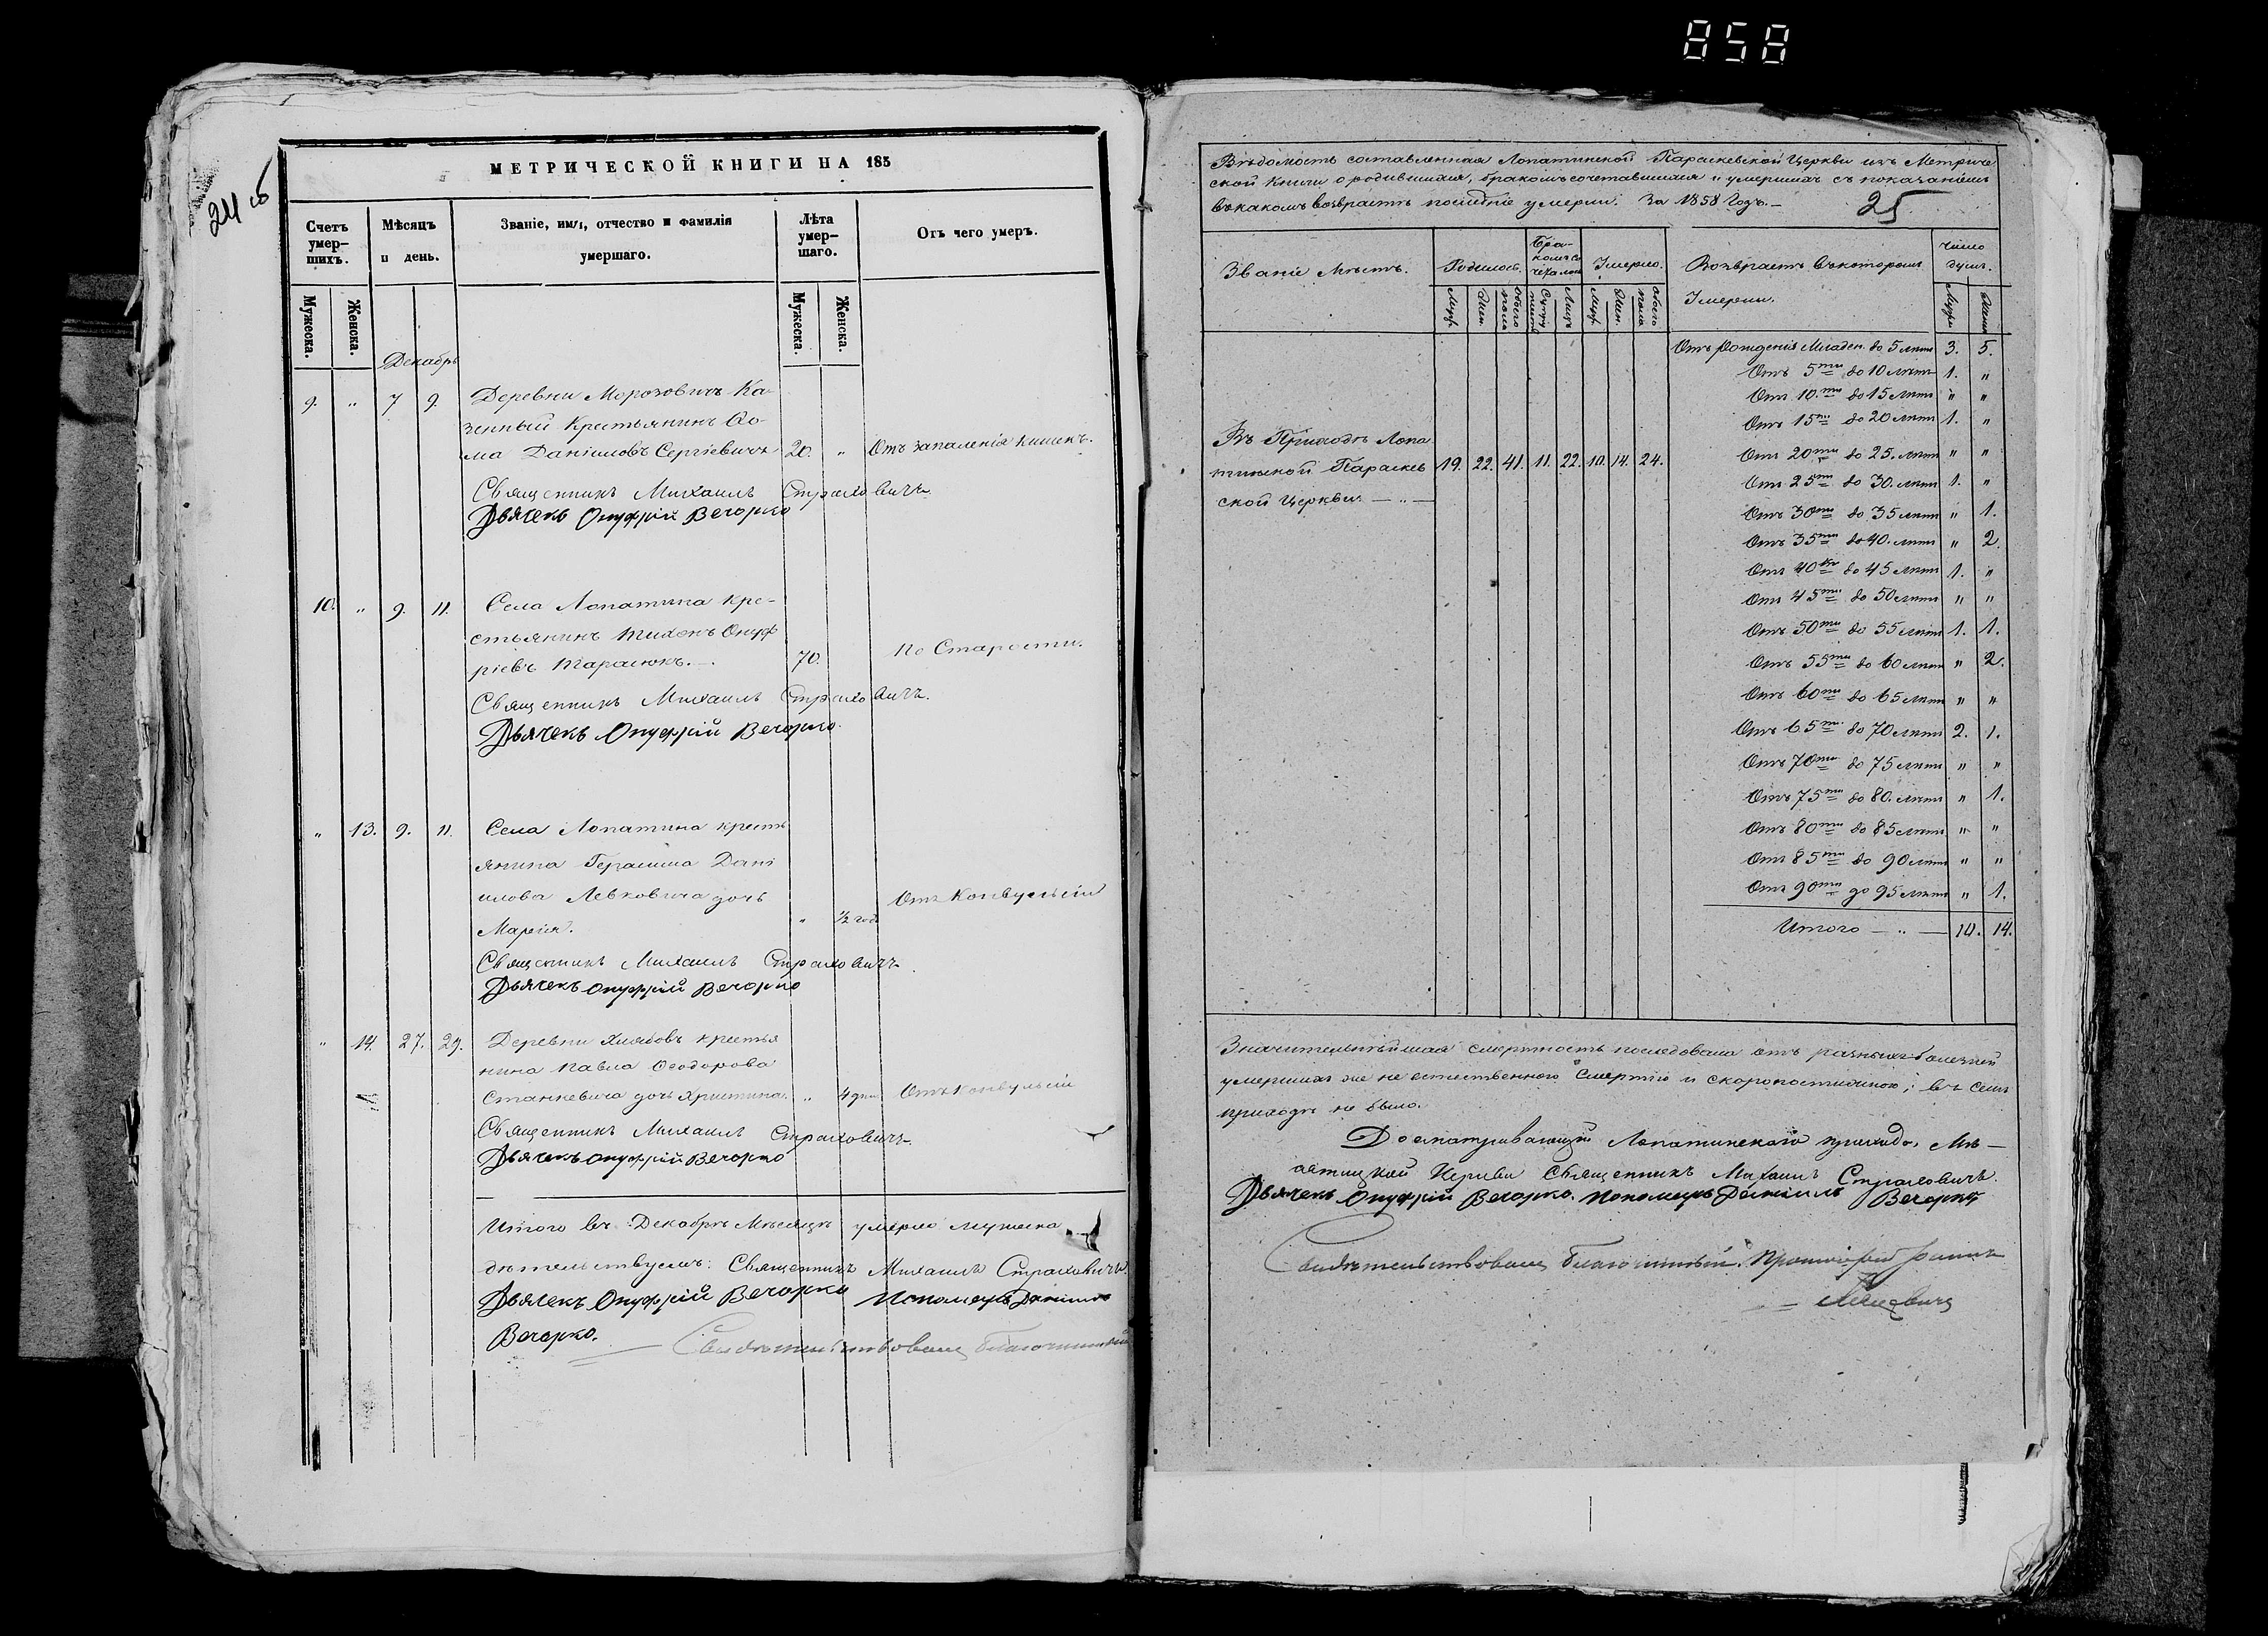 858
24 об
МЕТРИЧЕСКОЙ КНИГИ НА 185
Счетъ умер-шихъ.
Мѣсяцъ и день.
Званіе, имя, отчество и фамилія умершаго.
Лѣта умер-шаго.
Отъ чего умеръ.
Мужеска. Женска.
Мужеска. Женска.
Декабрь
9. „ 7 9. Деревни Морозовичъ Ка-
зенный Крестьянинъ Ѳо-
ма Даніиловъ Сергіевичъ 20. „ Отъ запаленія кишекъ.
Священникъ Михаилъ Страховичъ
Дьячекъ Онуфрій Вечорко
10. „ 9. 11. Села Лопатина кре-
стьянинъ Тихонъ Онуф
ріевъ Тарасюкъ. 70. По Старости.
Священникъ Михаилъ Страховичъ.
Дьячекъ Онуфрій Вечорко.
„ 13. 9. 11. Села Лопатина кресть
янина Герасима Дані
илова Левковича дочь
Марія. „ ½ год Отъ Конвульсіи
Священникъ Михаилъ Страховичъ
Дьячекъ Онуфрій Вечорко
„ 14. 27. 29. Деревни Хлябовъ крестья
нина Павла Ѳеодорова
Станкевича дочь Христина. „ 4 дни Отъ Конвульсіи
Священникъ Михаилъ Страховичъ
Дьячекъ Онуфрій Вечорко
Итого въ Декабрѣ Мѣсяцѣ умерло мужеска
дѣтельствуемъ: Священникъ Михаилъ Страховичъ.
Дьячекъ Онуфрій Вечорко Пономарь Даніилъ
Вечорко.
Свидѣтельствовалъ Благочинный
Вѣдомость составленная Лопатинской Параскевской Церкви изъ Метриче
ской Книги о родившихся, бракомъ сочетавшихся и умершихъ съ показаніемъ
въ какомъ возврастѣ послѣдніе умерли. За 1858 Годъ.
25
Званіе Мѣстъ.
Родилось.
Бра-комъ со
Умерло.
Возврастъ въ которомъ Умерли.
Число душъ.
Муж. Жен. Обоего пола Лицъ Муж. Жен. Обоего пола
Въ Приходѣ Лопа
тинской Параскев 19. 22. 41. 11. 22. 10. 14. 24.
ской Церкви.
Отъ рожденія Младен. до 5 лѣтъ 3. 5.
Отъ 5ти до 10 лѣтъ 1. „
Отъ 10.ти до 15 лѣтъ „ „
Отъ 15ти до 20 лѣтъ 1. „
Отъ 20ти до 25. лѣтъ „ „
Отъ 25ти до 30. лѣтъ 1. „
Отъ 30ти до 35 лѣтъ „ 1.
Отъ 35ти до 40. лѣтъ „ 2.
Отъ 40ка до 45 лѣтъ 1. „
Отъ 45ти до 50 лѣтъ „ „
Отъ 50ти до 55 лѣтъ 1. 1.
Отъ 55ти до 60 лѣтъ „ 2.
Отъ 60ти до 65 лѣтъ „ „
Отъ 65ти до 70 лѣтъ 2. 1.
Отъ 70ти до 75 лѣтъ „ „
Отъ 75ти до 80. лѣтъ „ 1.
Отъ 80ти до 85 лѣтъ „ „
Отъ 85ти до 90 лѣтъ „ „
Отъ 90ти до 95 лѣтъ „ 1.
Итого — „ — 10. 14.
Значительнѣйшая смертность послѣдовала отъ разныхъ болезней
умершихъ же не естественною Смертію и скоропостижною, въ семъ
приходѣ не было.
Досматривающій Лопатинскаго прихода,
Церкви Священникъ Михаилъ Страховичъ.
Дьячекъ Онуфрій Вечорко. Пономарь Даніилъ Вечорко
Свидѣтельствовалъ Благочинный. Протоіерей